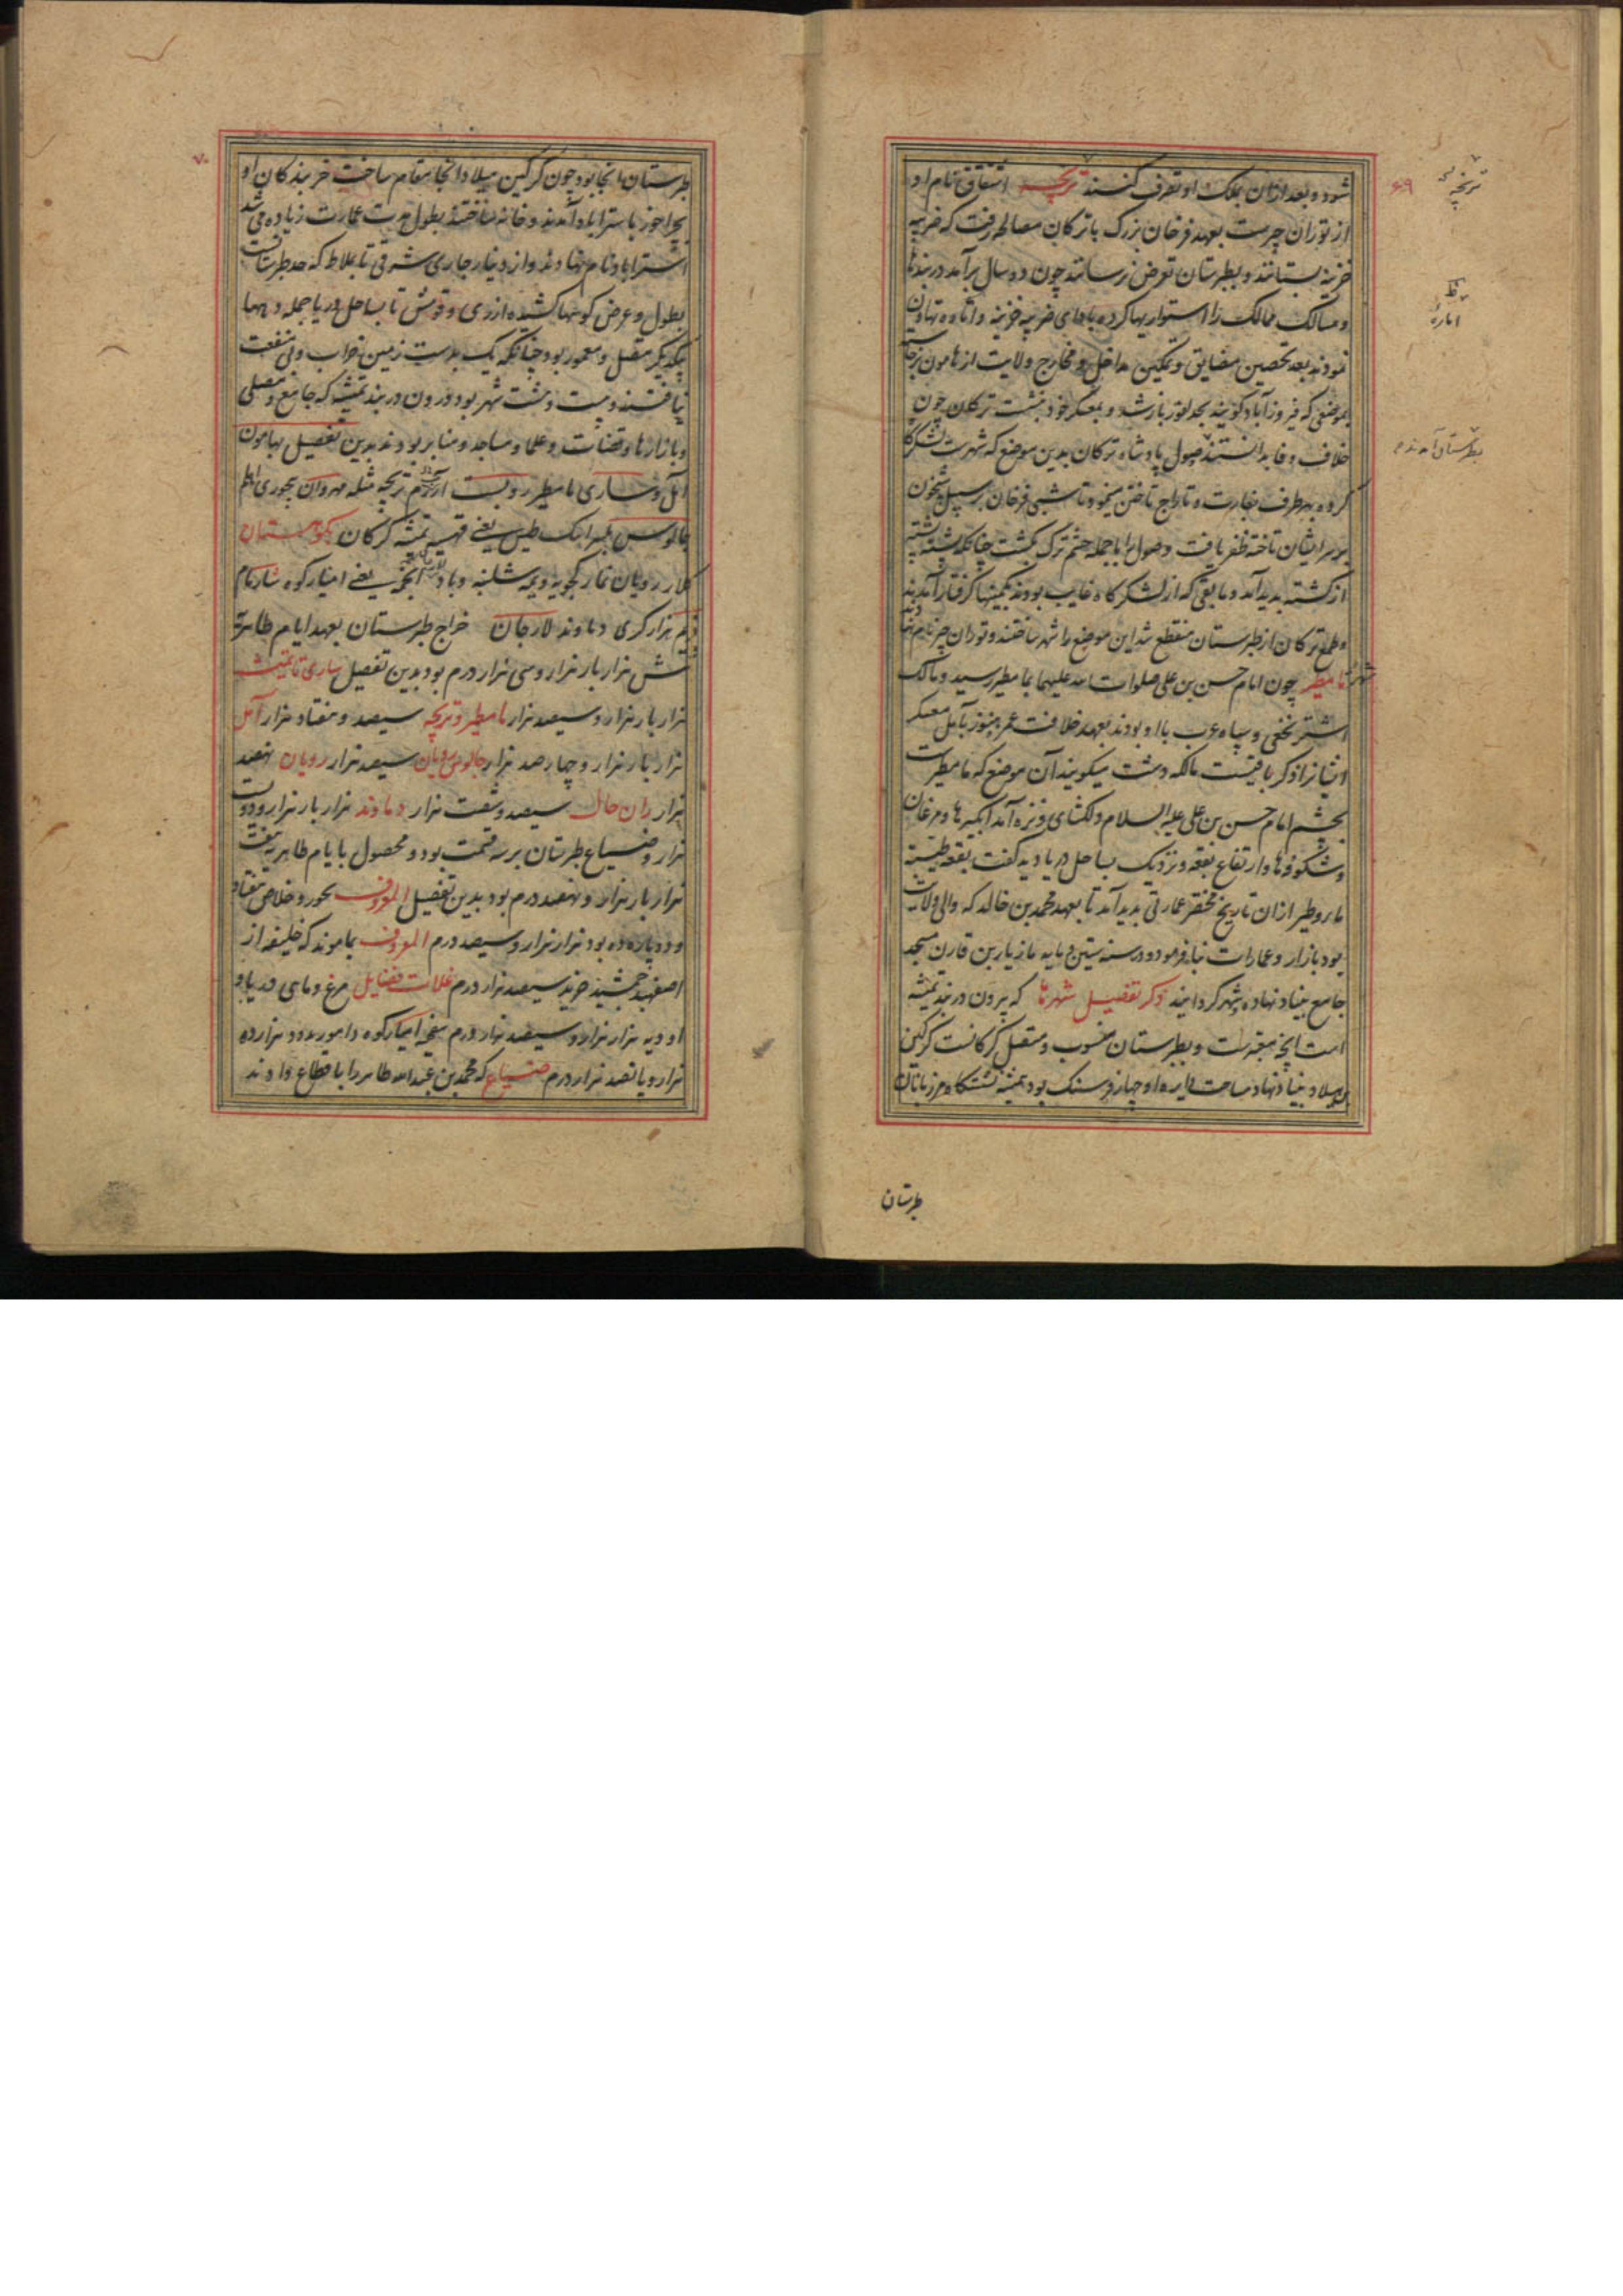 شود و بعد از آن بملک او تصرف کنند تریجه اشتقاق نام او
از توران چیرست بعهد فرخان بزرک با ترکان مصالحه رفت که ضریبه
خزینه بستانند و بطبرستان تعرض نرسانند چون دو سال برآمد دربندها
و مسالک ممالک را استواریها کرده بادای ضریبه خزینه و اتاوه تهاون
نمودند بعد تحصین مضایق و تمکین مداخل و مخارج ولایت از هامون برخاسته
بموضعی که فیروزآباد کویند بحد لفور باز شد و بمعسکر خود بنشست ترکان چون
خلاف وفا بدانستند صول پادشاه ترکان بدین موضع که شهرست لشکرکاه
کرده بهر طرف بغارت و تاراج تاختن میخود تا شبی فرخان بر سبیل شبخون
بر سر ایشان تاخته ظفر یافت و صول را با جمله حشم ترک بکشت چنانکه پشته پشته
از کشته پدید آمد و مابقی که از لشکرکاه غایب بودند بکمینها کرفتار آمدند
و طمع ترکان از طبرستان منقطع شد این موضع را شهر ساختند و توران چیر نام نهادند
مامطیر چون امام حسن بن علی صلوات الله علیهما بمامطیر رسید و مالک
اشتر نخعی و سپاه عرب با او بودند بعهد خلافت عمر هنوز بآمل معسکر
ایشانرا ذکر باقیست مالکه دشت میکویند آن موضع که مامطیرست
بچشم امام حسن بن علی علیه السلام دلکشای و نزه آمد آبکیرها و مرغان
و شکوفها و ارتفاع بقعه و نزدیک بساحل دریا دیه کفت بقعة طیبة
ماء و طیر از آن تاریخ مختصر عمارتی پدید آمد تا بعهد محمد بن خالد که والی ولایت
بود بازار و عمارات بنا فرمود و در سنه ستین و مایه مازیار بن قارن مسجد
جامع بنیاد نهاده و شهر کردانید ذکر تفضیل شهرها که بیرون دربند تمیشه
است آنچه معتبرست و بطبرستان منسوب و متصل کرکانست کرکین
میلاد بنیاد نهاد مساحت دایره او چهار فرسنک بود تمیشه نشستکاه مرزبانان
طبرستان
تریجه
اماره
بطبرستان آمدند
۶۹
۷۰
طبرستان آنجا بود چون کرکین میلاد آنجا مقام ساخت خربندکان او
بچراخور باسترآباد آمدند و خانه ساختند بطول مدت عمارت زیاده می شد
استراباد نام نهادند و از دینار جاری شرقی تا بملاط که حد طبرستانست
بطول و عرض کوهها کشیده از ری و قومش تا بساحل دریا جمله دیهها
یکدیکر متصل و معمور بود چنانکه یک بدست زمین خراب و بی منفعت
نیافتند و بیست و هشت شهر بود درون دربند تمیشه که جامع و مصلی
و بازارها و قضات و علما و مساجد و منابر بودند بدین تفصیل بهامون
آمل و ساری مامطیر رودبست آرم تریجه میله مهروان
چالوس طمیس یعنی تمیشه کرکان بکوهستان
کلار رویان نمار کجویه ویمه شلنبه وفاد یعنی امیارکوه شارمام
فریم هزارکری دماوند لارجان خراج طبرستان بعهد ایام طاهریه
شش هزار بار هزار و سی هزار درم بود بدین تفصیل ساری تا تمیشه
هزار بار هزار و سیصد هزار مامطیر و تریجه سیصد و هفتاد هزار آمل
هزار بار هزار و چهارصد هزار چالوس سیصد هزار رویان نهصد
هزار سیصد و شصت هزار دماوند هزار بار هزار و دویست
هزار و ضیاع طبرستان بر سه قسمت بود و محصول بایام طاهریه هفت
هزار بار هزار و نهصد درم بود بدین تفصیل المعروف بحور و خلاص هفتاد
و دو پاره ده بود هزار هزار و سیصد درم المعروف بمامونه که خلیفه از
اصفهبد خرید سیصد هزار درم غلات قضایل مرغ و ماهی
هزار هزار و سیصد هزار درم امیارکوه
هزار و پانصد هزار درم ضیاع که محمد بن عبدالله طاهر را باقطاع دادند